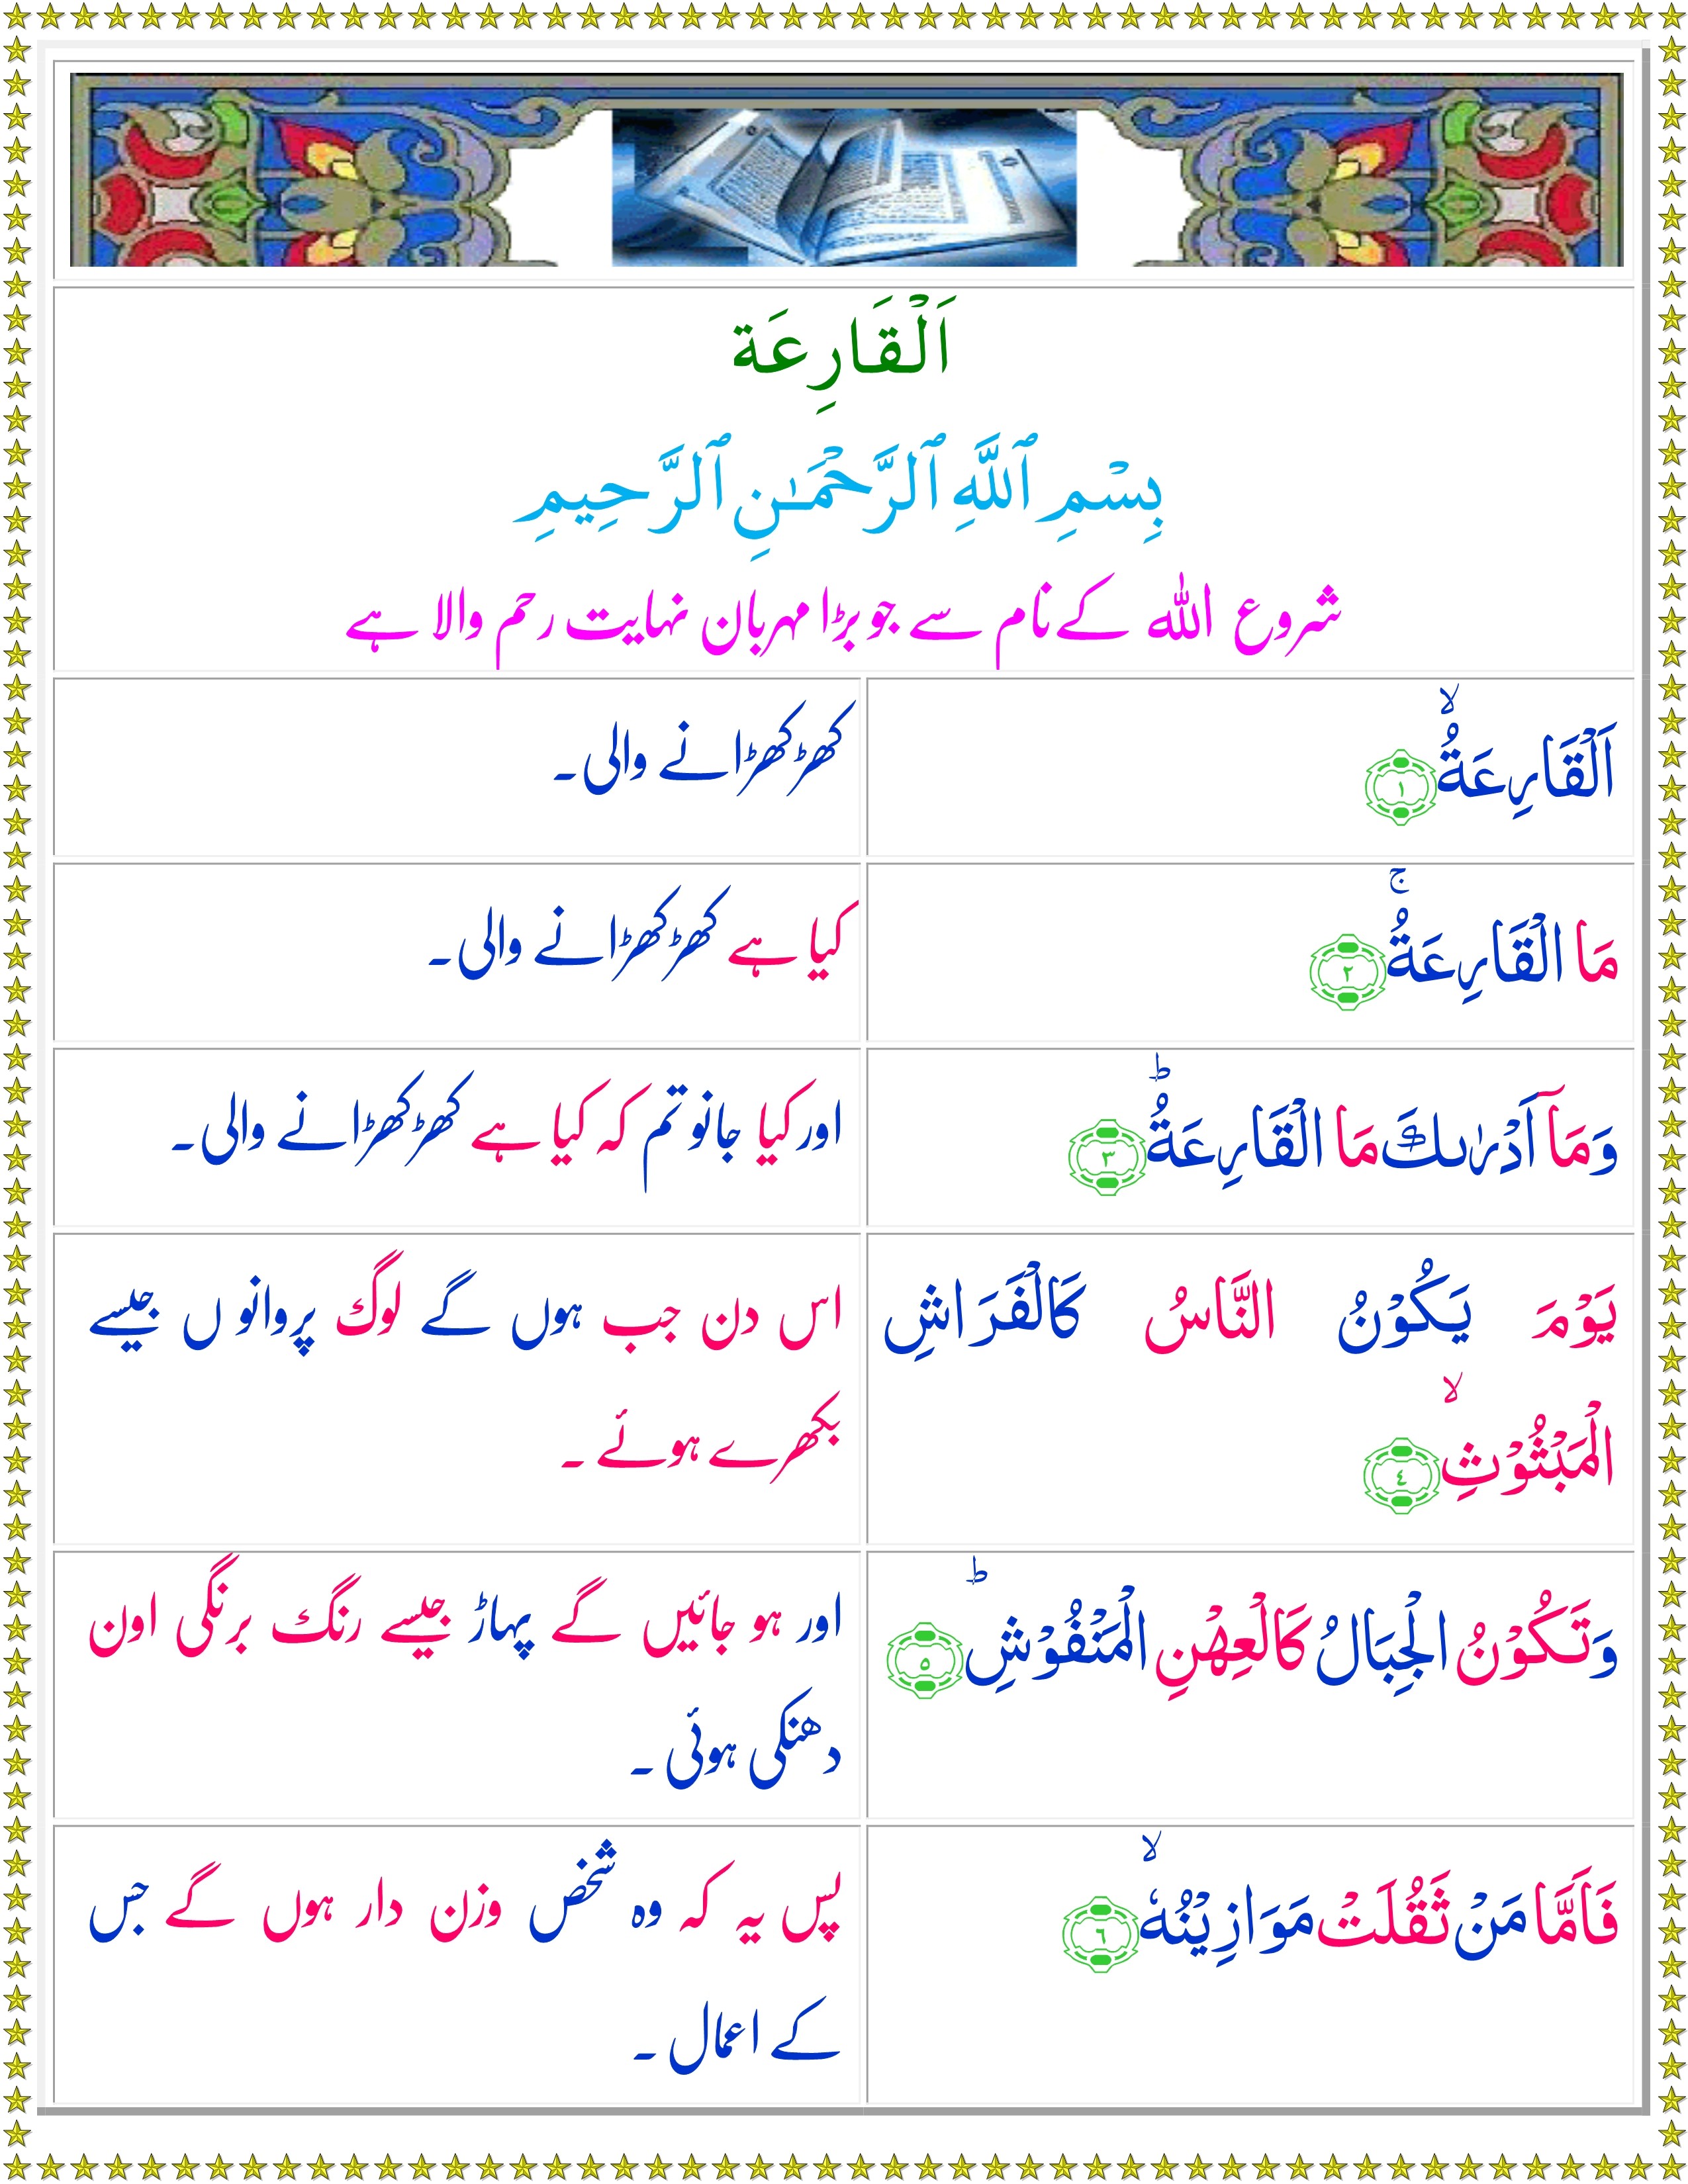 اَلْقَارِعَة
بِسْمِ ٱللَّهِ ٱلرَّحْمَـٰنِ ٱلرَّحِيمِ
شروع اللہ کے نام سے جو بڑا مہربان نہایت رحم والا ہے
اَلْقَارِعَةُۙ ﴿١﴾
کھڑکھڑانے والی۔
مَا الْقَارِعَةُۚ ﴿٢﴾
کیا ہے کھڑکھڑانے والی۔
وَمَاۤ اَدْرٰٮكَ مَا الْقَارِعَةُؕ ﴿٣﴾
اور کیا جانو تم کہ کیا ہے کھڑکھڑانے والی۔
يَوْمَ يَكُوْنُ النَّاسُ كَالْفَرَاشِ
الْمَبْثُوْثِۙ ﴿٤﴾
اس دن جب ہوں گے لوگ پروانو ں جیسے
بکھرے ہوئے ۔
وَتَكُوْنُ الْجِبَالُ كَالْعِهْنِ الْمَنْفُوْشِؕ ﴿٥﴾
اور ہو جائیں گے پہاڑ جیسے رنگ برنگی اون
دھنکی ہوئی ۔
فَاَمَّا مَنْ ثَقُلَتْ مَوَازِيْنُهٗۙ ﴿٦﴾
پس یہ کہ وہ شخص وزن دار ہوں گے جس
کے اعمال ۔